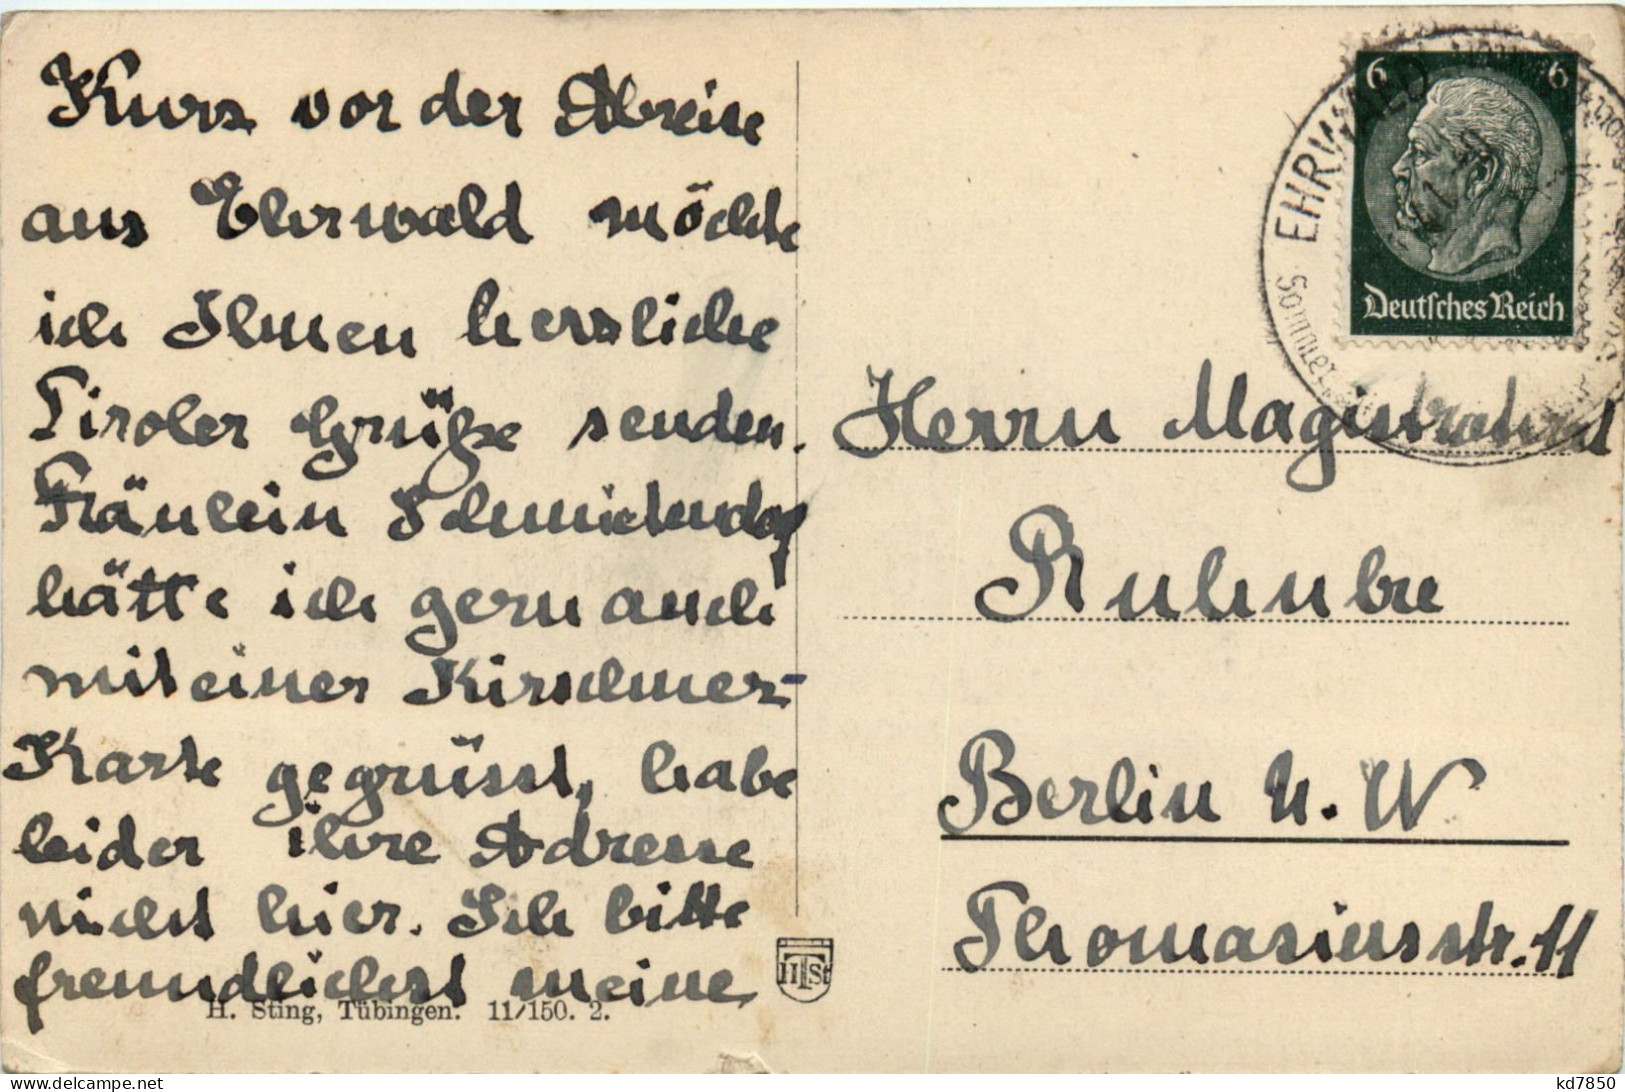 Kurz vor der Abreise
aus Ehrwald möchte
ich Ihnen herzliche
Tiroler Grüße senden.
Fräulein Schmichendorf
hätte ich gern auch
mit einer Kirschner-
Karte gegrüsst, habe
leider ihre Adresse
nicht hier. Ich bitte
freundlichst meine
H. Sting, Tübingen. 11/150. 2.
HTSt
6 6
Deutsches Reich
EHRWALD
Sommer
Herrn Magistratsrat
Berlin N.W
Thomasiusstr. 11
delcampe.net
kd7850